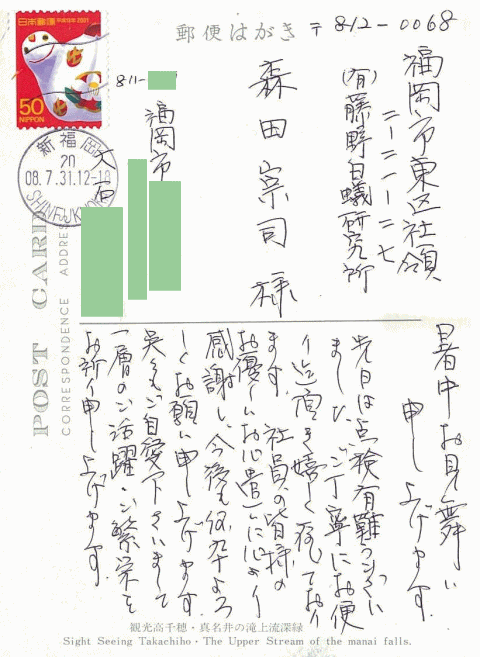 郵便はがき
〒812-0068
福岡市東区社領
二-二一-二七
(有)藤野白蟻研究所
森田崇司様
日本郵便 平成13年 2001
50
NIPPON
811-
福岡市
大石
新福岡
20
08.7.31.12-18
SHINFUKUOKA
POST CARD
CORRESPONDENCE ADDRESS
暑中お見舞い
申し上げます
先日は点検有難うござい
ました。ご丁寧にお便
り迄頂き嬉しく存じており
ます。社員の皆様の
お優しいお心遣いに心より
感謝し、今後も何卒よろ
しくお願い申し上げます。
呉々もご自愛下さいまして
一層のご活躍ご繁栄を
お祈り申し上げます。
観光高千穂・真名井の滝上流深緑
Sight Seeing Takachiho・The Upper Stream of the manai falls.